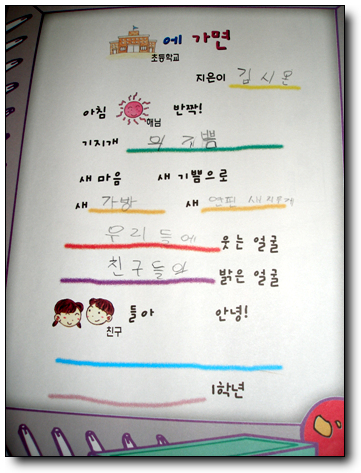 에 가면
초등학교
지은이 김시온
아침 해님 반짝!
기지개 의 기쁨
새 마음 새 기쁨으로
새 가방 새 연필 새 지우개
우리들에 웃는 얼굴
친구들의 밝은 얼굴
친구 들아 안녕!
1학년